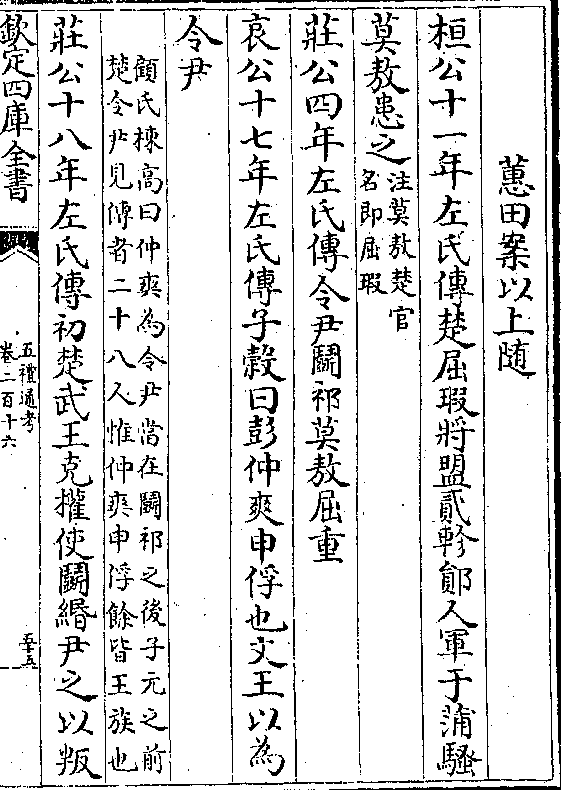 蕙田案以上随
桓公十一年左氏傳楚屈瑕將盟貳軫鄖人軍于蒲騷
莫敖患之
注莫敖楚官
名即屈瑕
莊公四年左氏傳令尹鬭祁莫敖屈重
哀公十七年左氏傳子穀曰彭仲爽申俘也文王以為
令尹
顧氏棟高曰仲爽為令尹當在鬭祁之後子元之前
楚令尹見傳者二十八人惟仲爽申俘餘皆王族也
莊公十八年左氏傳初楚武王克權使鬭緡尹之以叛
欽定四庫全書
五禮通考
卷二百十六
五十五